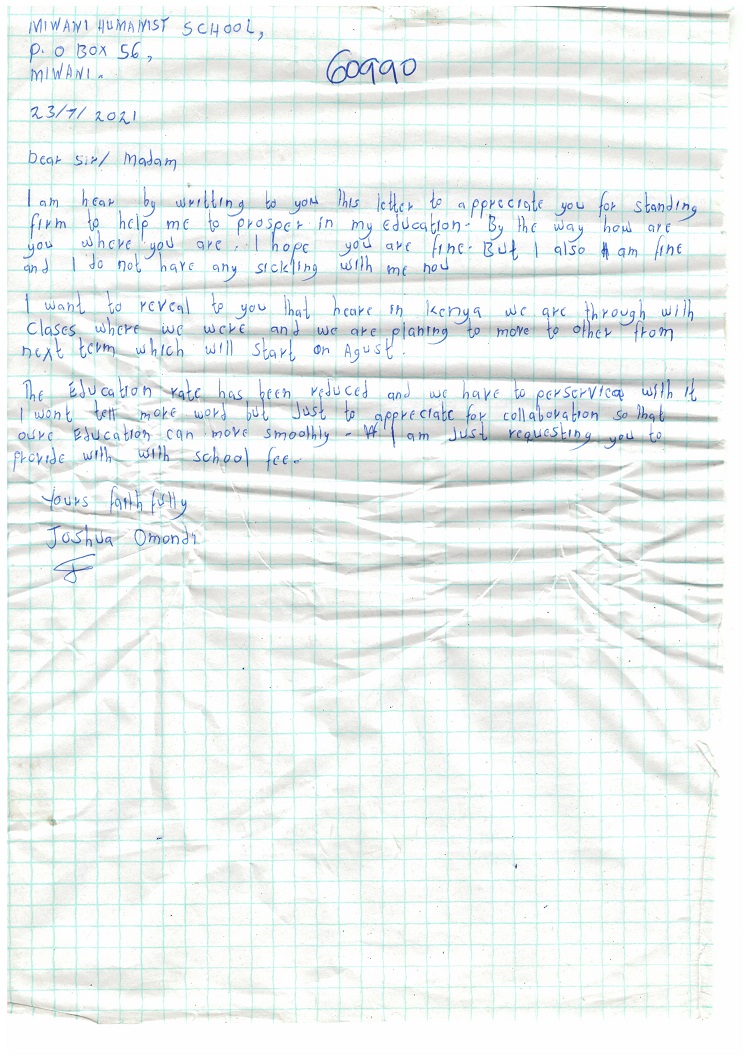 MIWANI HUMANIST SCHOOL,
P. O BOX 56,
60990
MIWANI.
23/7/2021
Dear Sir/ Madam
I am hear by writting to you this letter to appreciate you for standing
firm to help me to prosper in my education. By the way how are
you where you are. I hope you are fine. But I also am fine
and I do not have any sickling with me now
I want to reveal to you that heare in Kenya we are through with
Clases where we were and we are planing to move to other from
next term which will start on Agust.
The Education rate has been reduced and we have to with it
I wont tell more word but Just to appreciate for collaboration so that
oure Education can move smoothly. I am Just requesting you to
provide with with school fee.
Yours faithfully
Joshua Omondi